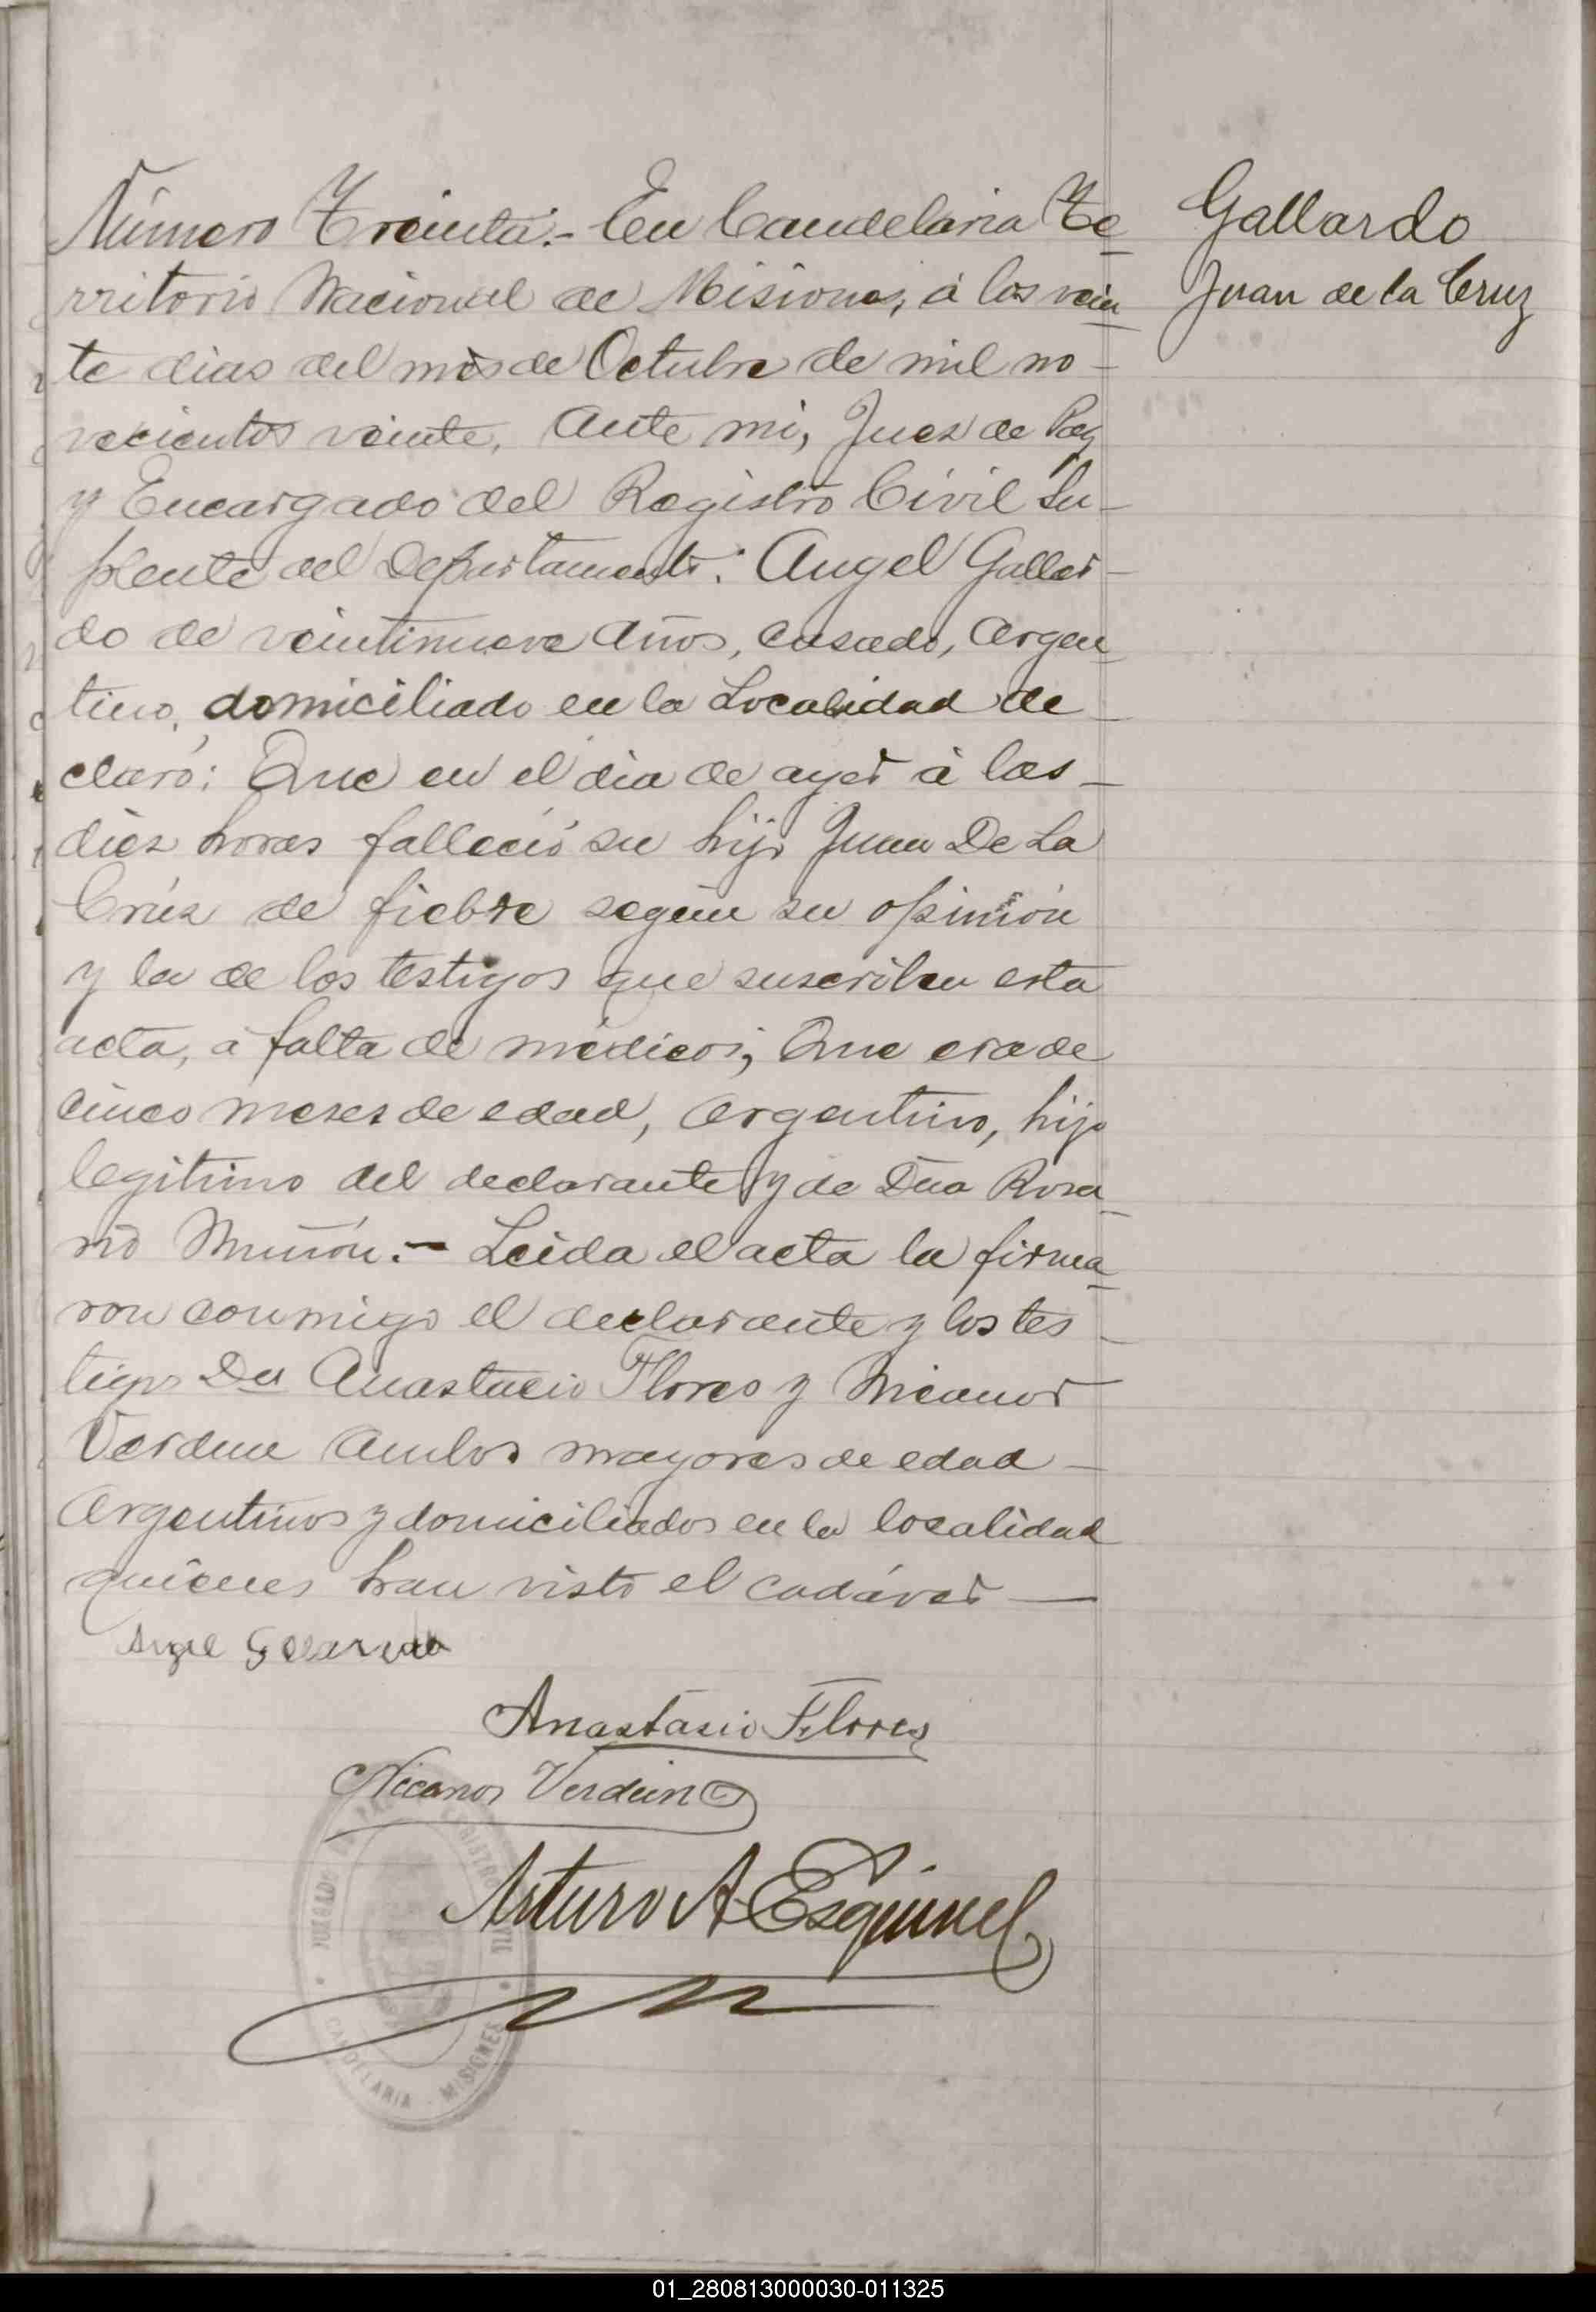 Gallardo
Juan de la Cruz
Número Treinta.- En Candelaria Te-
rritorio Nacional de Misiones, á los vein-
te dias del mes de Octubre de mil no-
vecientos veinte, Ante mi, Juez de Paz
y Encargado del Registro Civil Su-
plente del Departamento: Angel Gallar-
do de veintinueve años, casado, argen-
tino, domiciliado en la Localidad de-
claró: Que en el dia de ayer á las-
diez horas falleció su hijo Juan De La
Crúz de fiebre según su opinión
y la de los testigos que suscriben esta
acta, á falta de médicos; Que era de
cinco meses de edad, argentino, hijo
legitimo del declarante y de Dña Rosa-
rio Muñón.- Leida el acta la firma-
ron conmigo el declarante y los tes-
tigos Dn Anastacio Flores y Nicanor
Verdun ambos mayores de edad-
argentinos y domiciliados en la localidad
quienes han visto el cadáver-
Angel Gallardo
Anastasio Flores
Nicanor Verdun
Arturo A Esquivel
JUZGADO DE PAZ
REGISTRO CIVIL
CANDELARIA - MISIONES
01_280813000030-011325